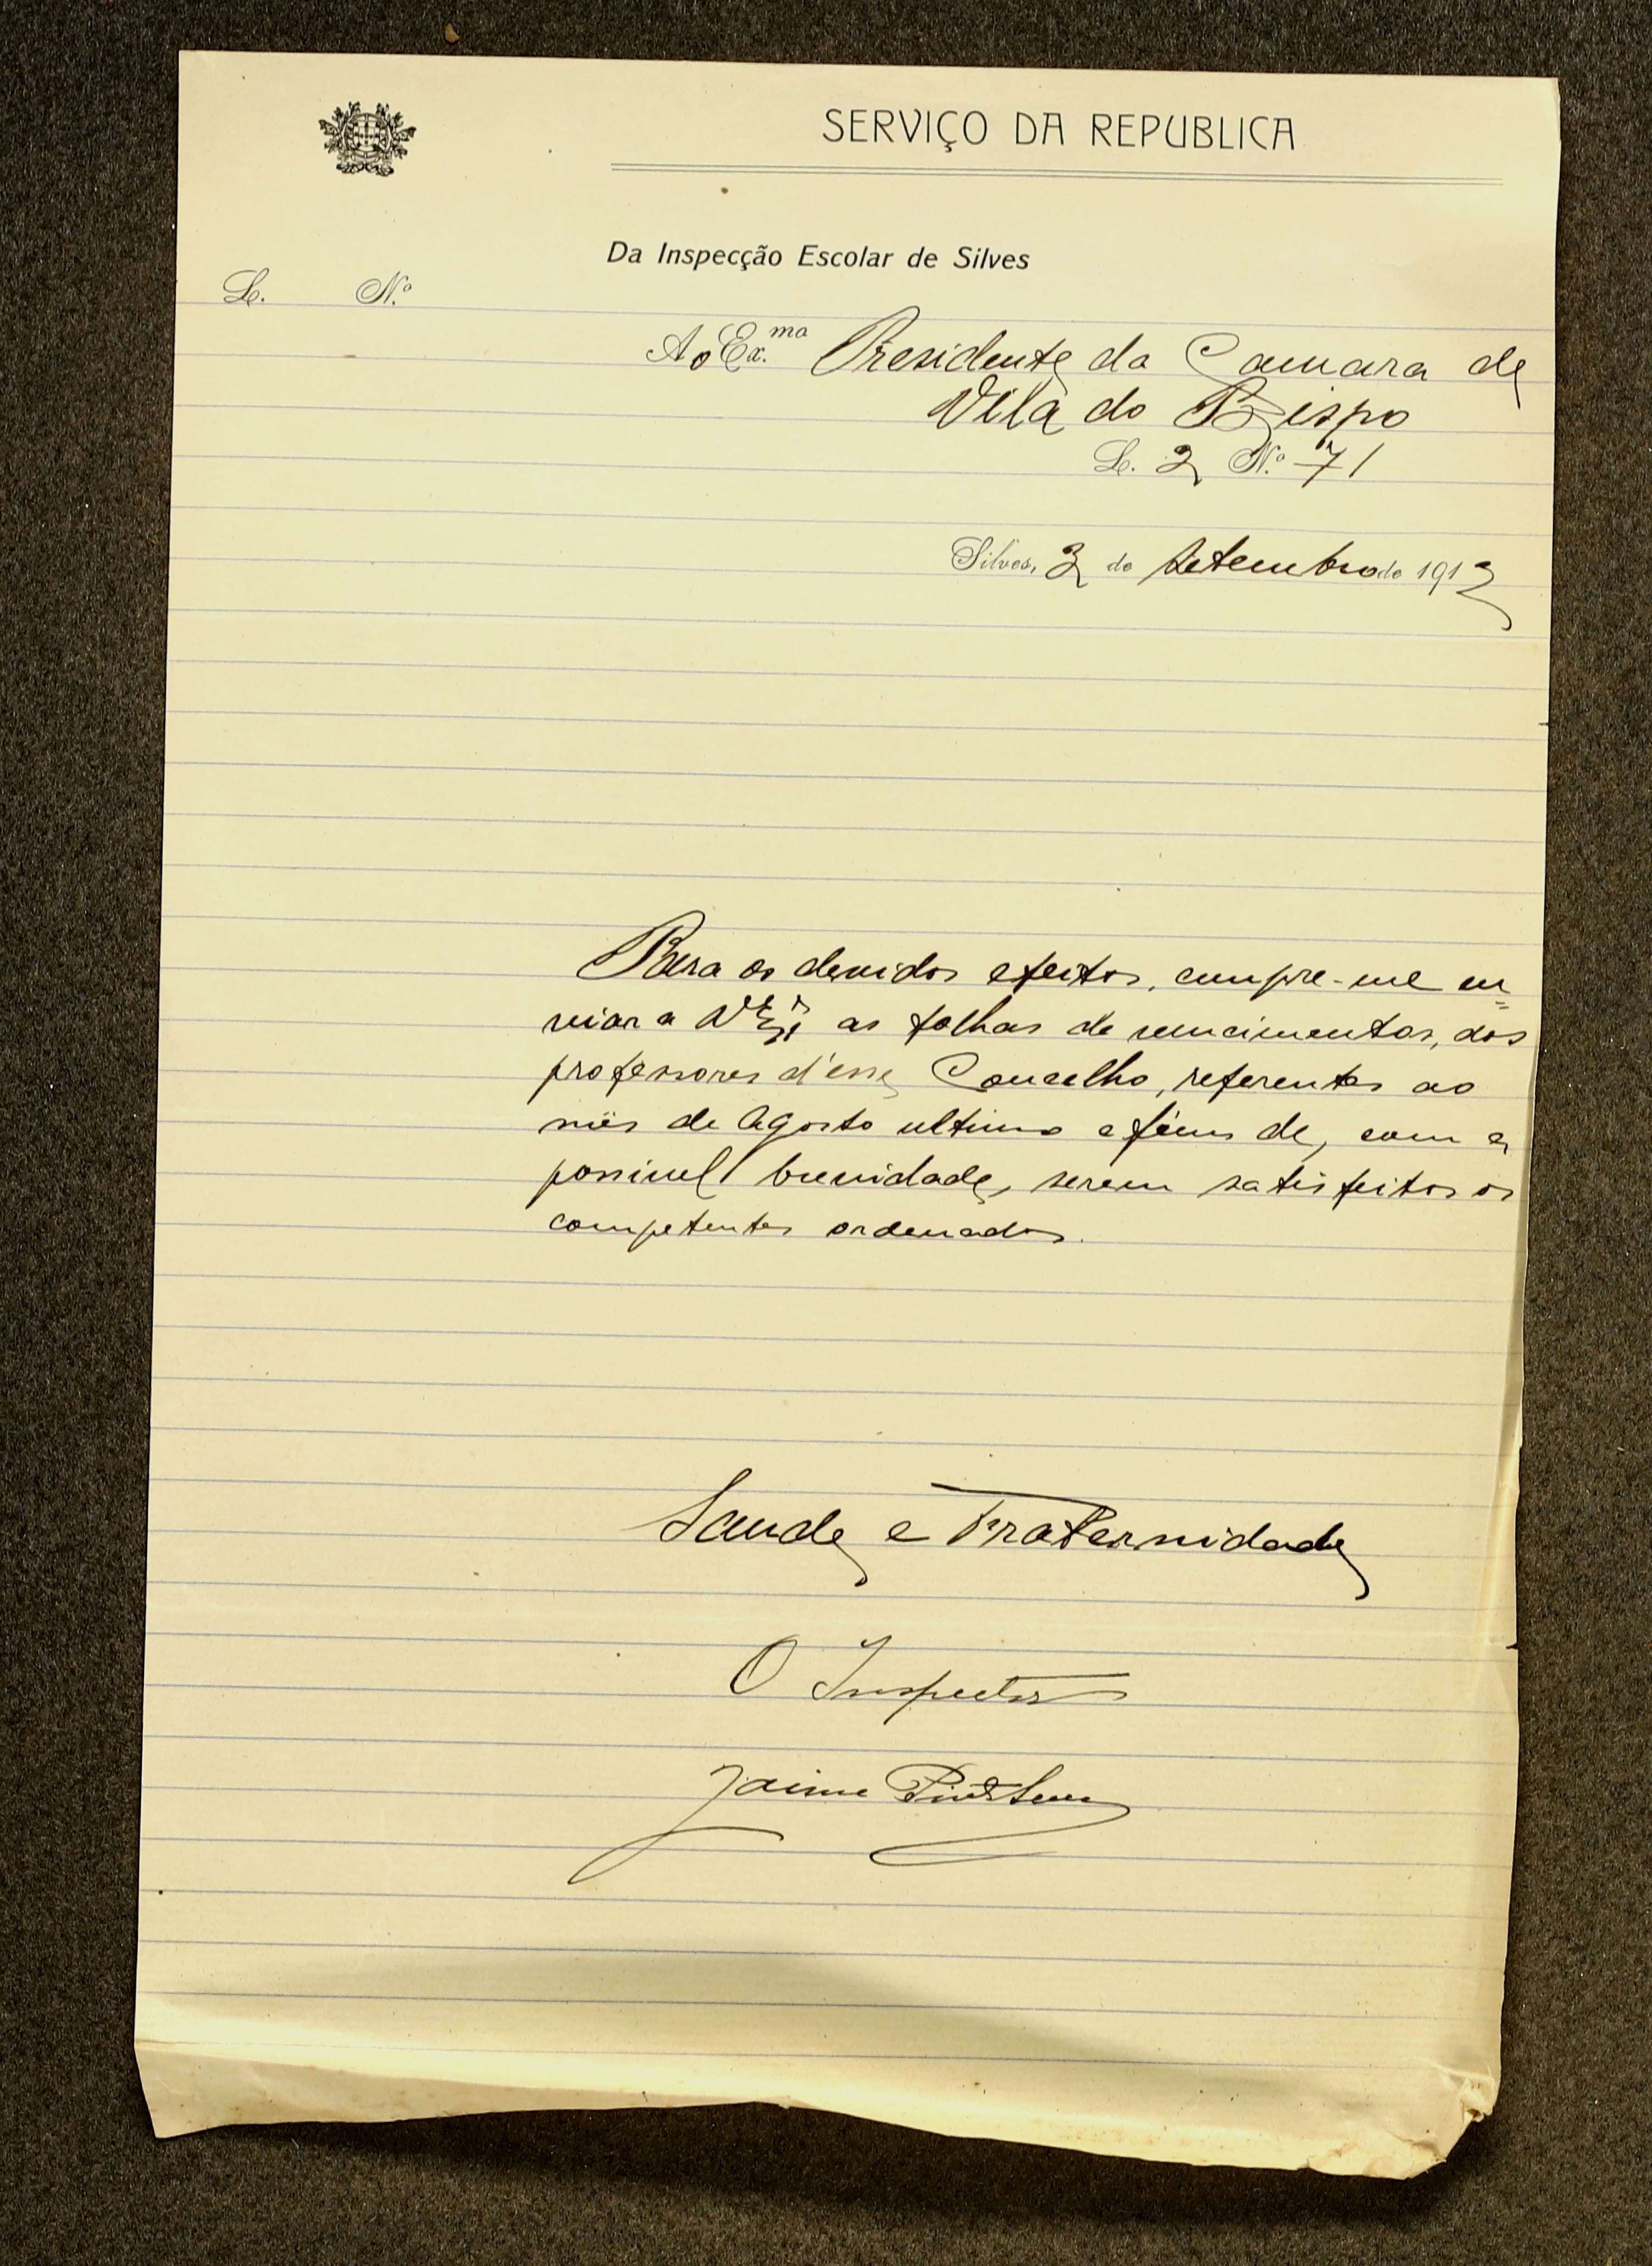 SERVIÇO DA REPUBLICA
Da Inspecção Escolar de Silves
L. N.º
Ao Ex.mo Presidente da Camara de
Vila do Bispo
L. 2 N.º 71
Silves, 2 de Setembro de 1912
Para os devidos efeitos, cumpre-me en=
viar a V. Ex.ª as folhas de vencimentos, dos
professores d'esse Concelho, referentes ao
mês de Agosto ultimo afim de, com a
possivel brevidade, serem satisfeitos os
competentes ordenados.
Saude e Fraternidade
O Inspector
Jaime